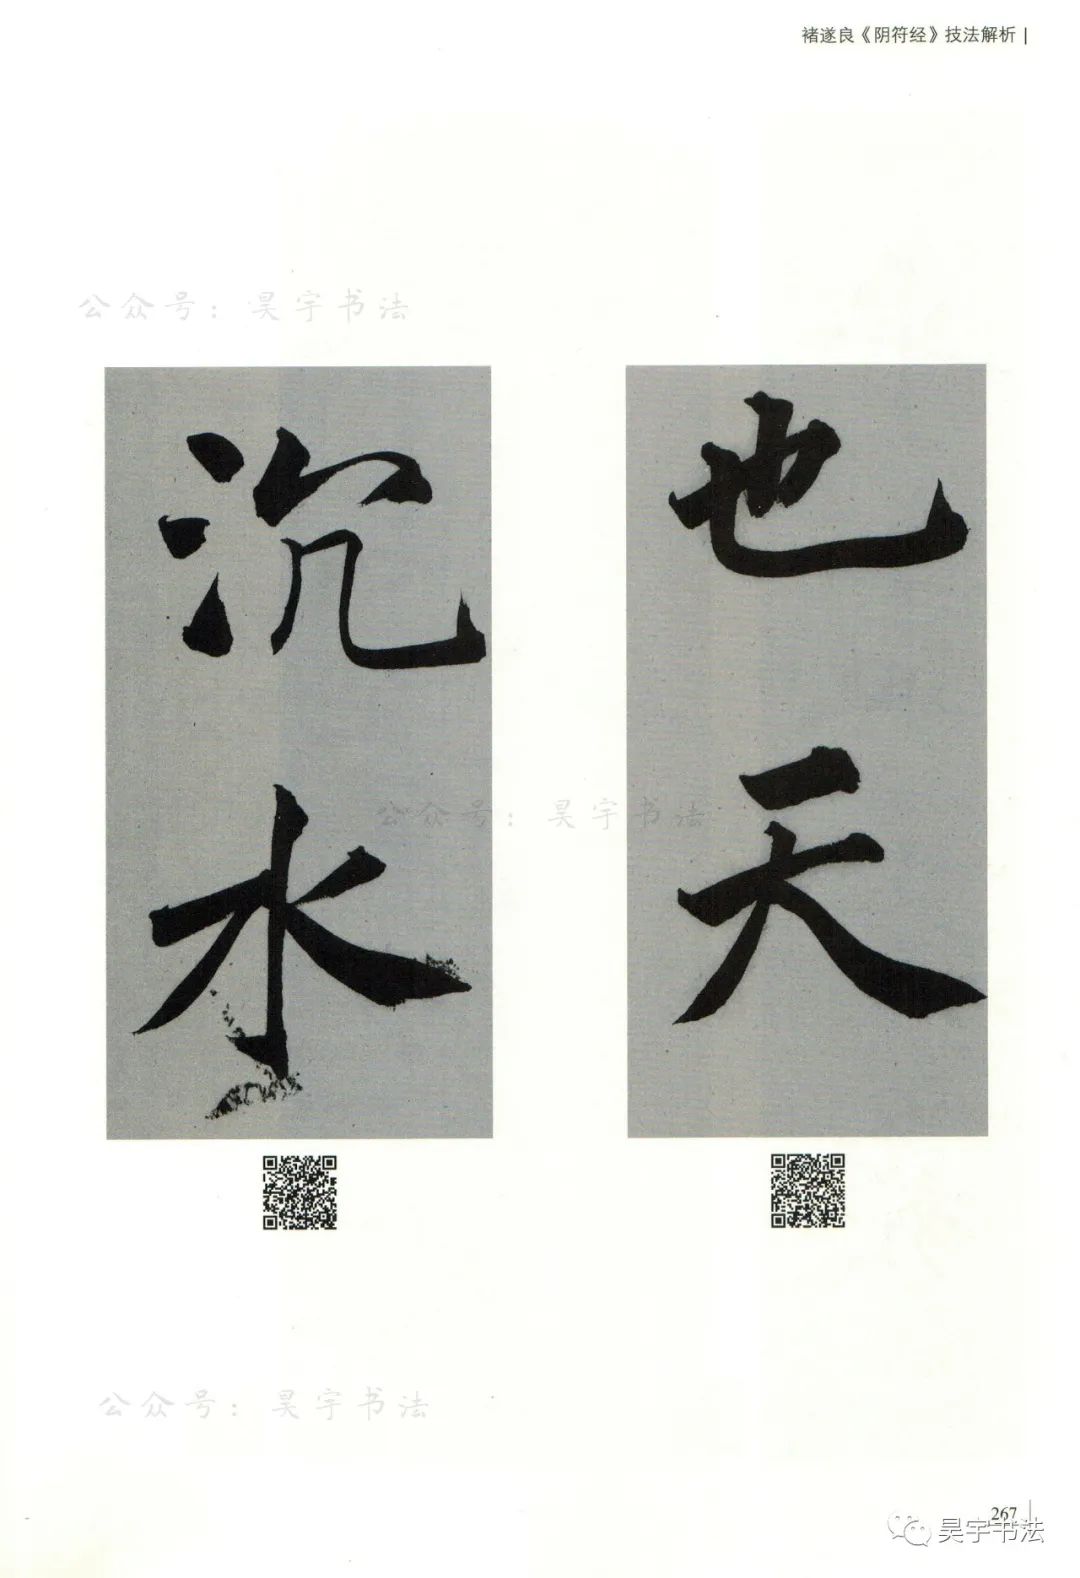 褚遂良《阴符经》技法解析
公众号：昊宇书法
也天
沉水
公众号：昊宇书法
公众号：昊宇书法
267
昊宇书法